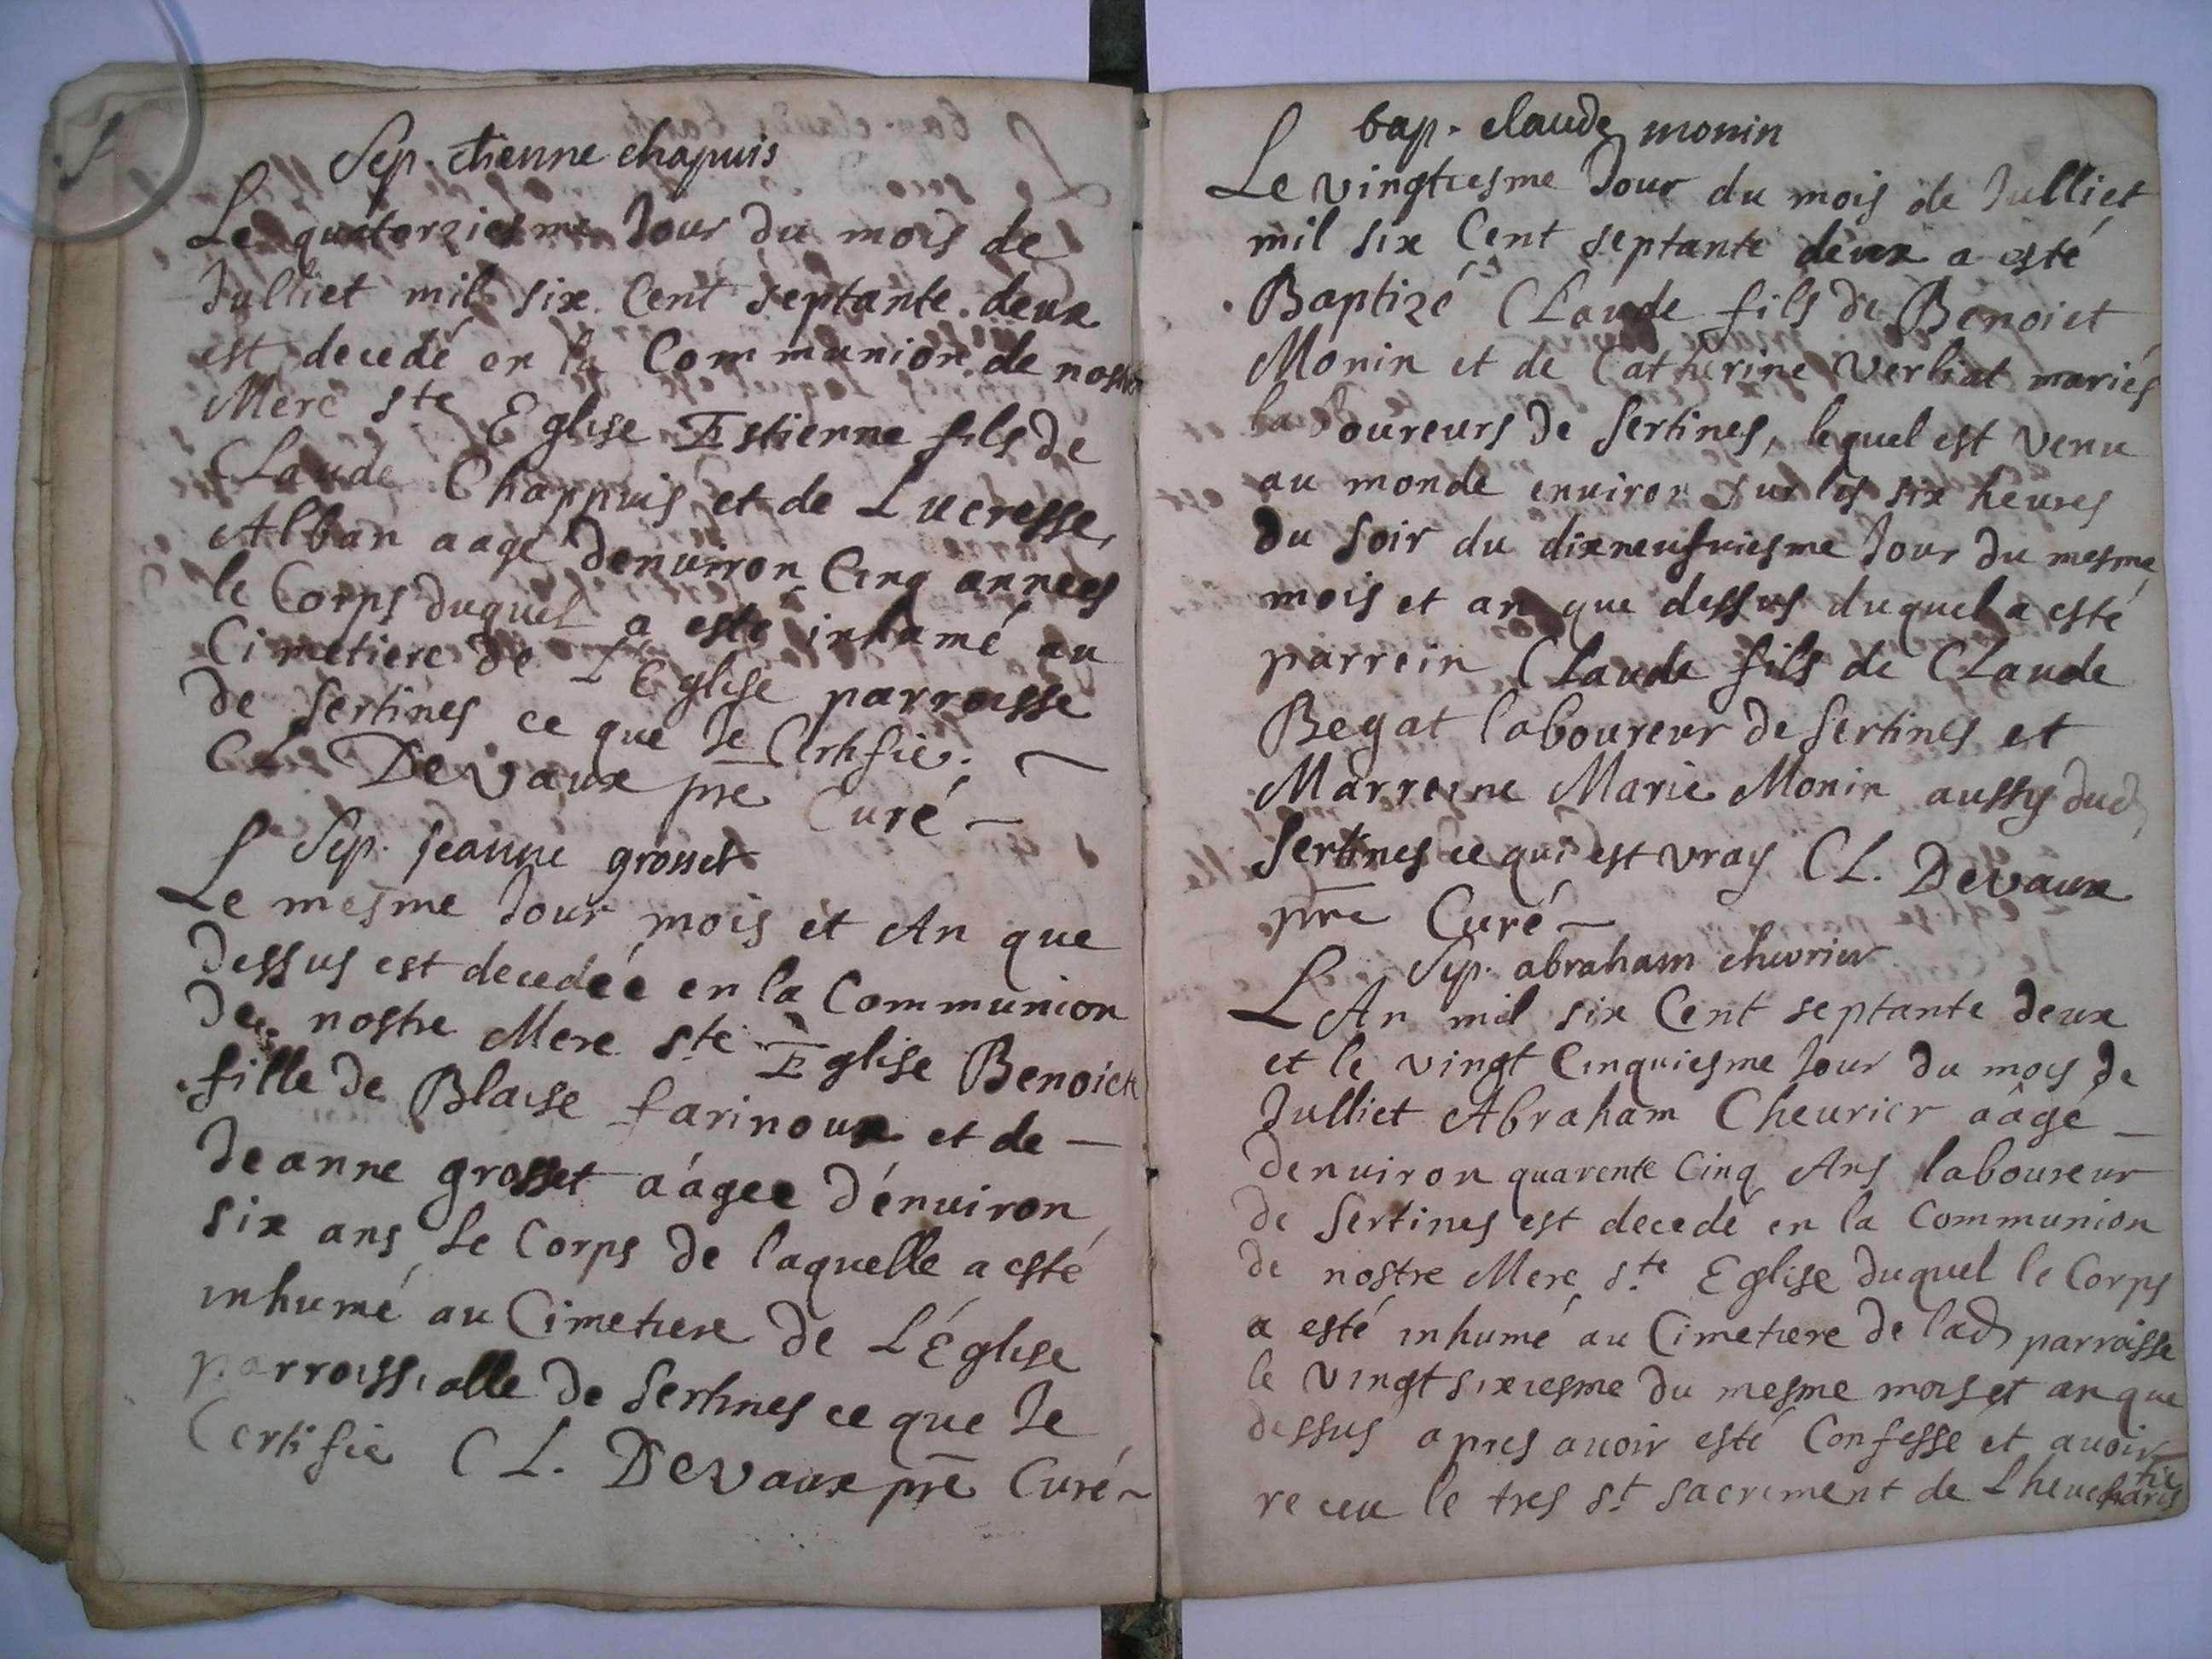 Sep. etienne chapuis
Le quatorziesme Jour du mois de
Julliet mil six Cent septante deux
est decedé en la Communion de nostre
Mere ste Eglise Estienne fils de
CLaude Chappuis et de Lucresse
Alban aagé denuiron Cinq années
le Corps duquel a esté inhumé au
Cimetiere de L'Eglise parroisse
de Sertines ce que Je Certifie.
CL. Devaux pre Curé
Sep. jeanne grosset
Le mesme Jour mois et An que
dessus est decedée en la Communion
de nostre Mere ste Eglise Benoicte
fille de Blaise farinoux et de
Jeanne grosset aágee d'énuiron
six ans Le Corps de laquelle a esté
inhumé au Cimetiere de L'Église
parroissialle de Sertines ce que Je
Certifie CL. Devaux pre Curé
bap. claude monin
Le vingtiesme Jour du mois de Julliet
mil six Cent septante deux a esté
Baptizé CLaude fils de Benoict
Monin et de Catherine Verliat mariés
laboureurs de Sertines, lequel est venu
au monde enuiron sur les six heures
du soir du dixneufuiesme Jour du mesme
mois et an que dessus duquel a esté
parrein CLaude fils de CLaude
Begat laboureur de Sertines et
Marreine Marie Monin aussy dud
Sertines ce qui est vray CL. Devaux
pre Curé
Sep. abraham chevrier
L'An mil six Cent septante deux
et le vingt Cinquiesme Jour du mois de
Julliet Abraham Cheurier aâgé
denuiron quarente Cinq Ans laboureur
de Sertines est decedé en la Communion
de nostre Mere ste Eglise duquel le Corps
a esté inhumé au Cimetiere de lad parroisse
le vingt sixiesme du mesme mois et an que
dessus apres auoir esté Confessé et auoir
receu le tres st sacrement de Lheucharistie